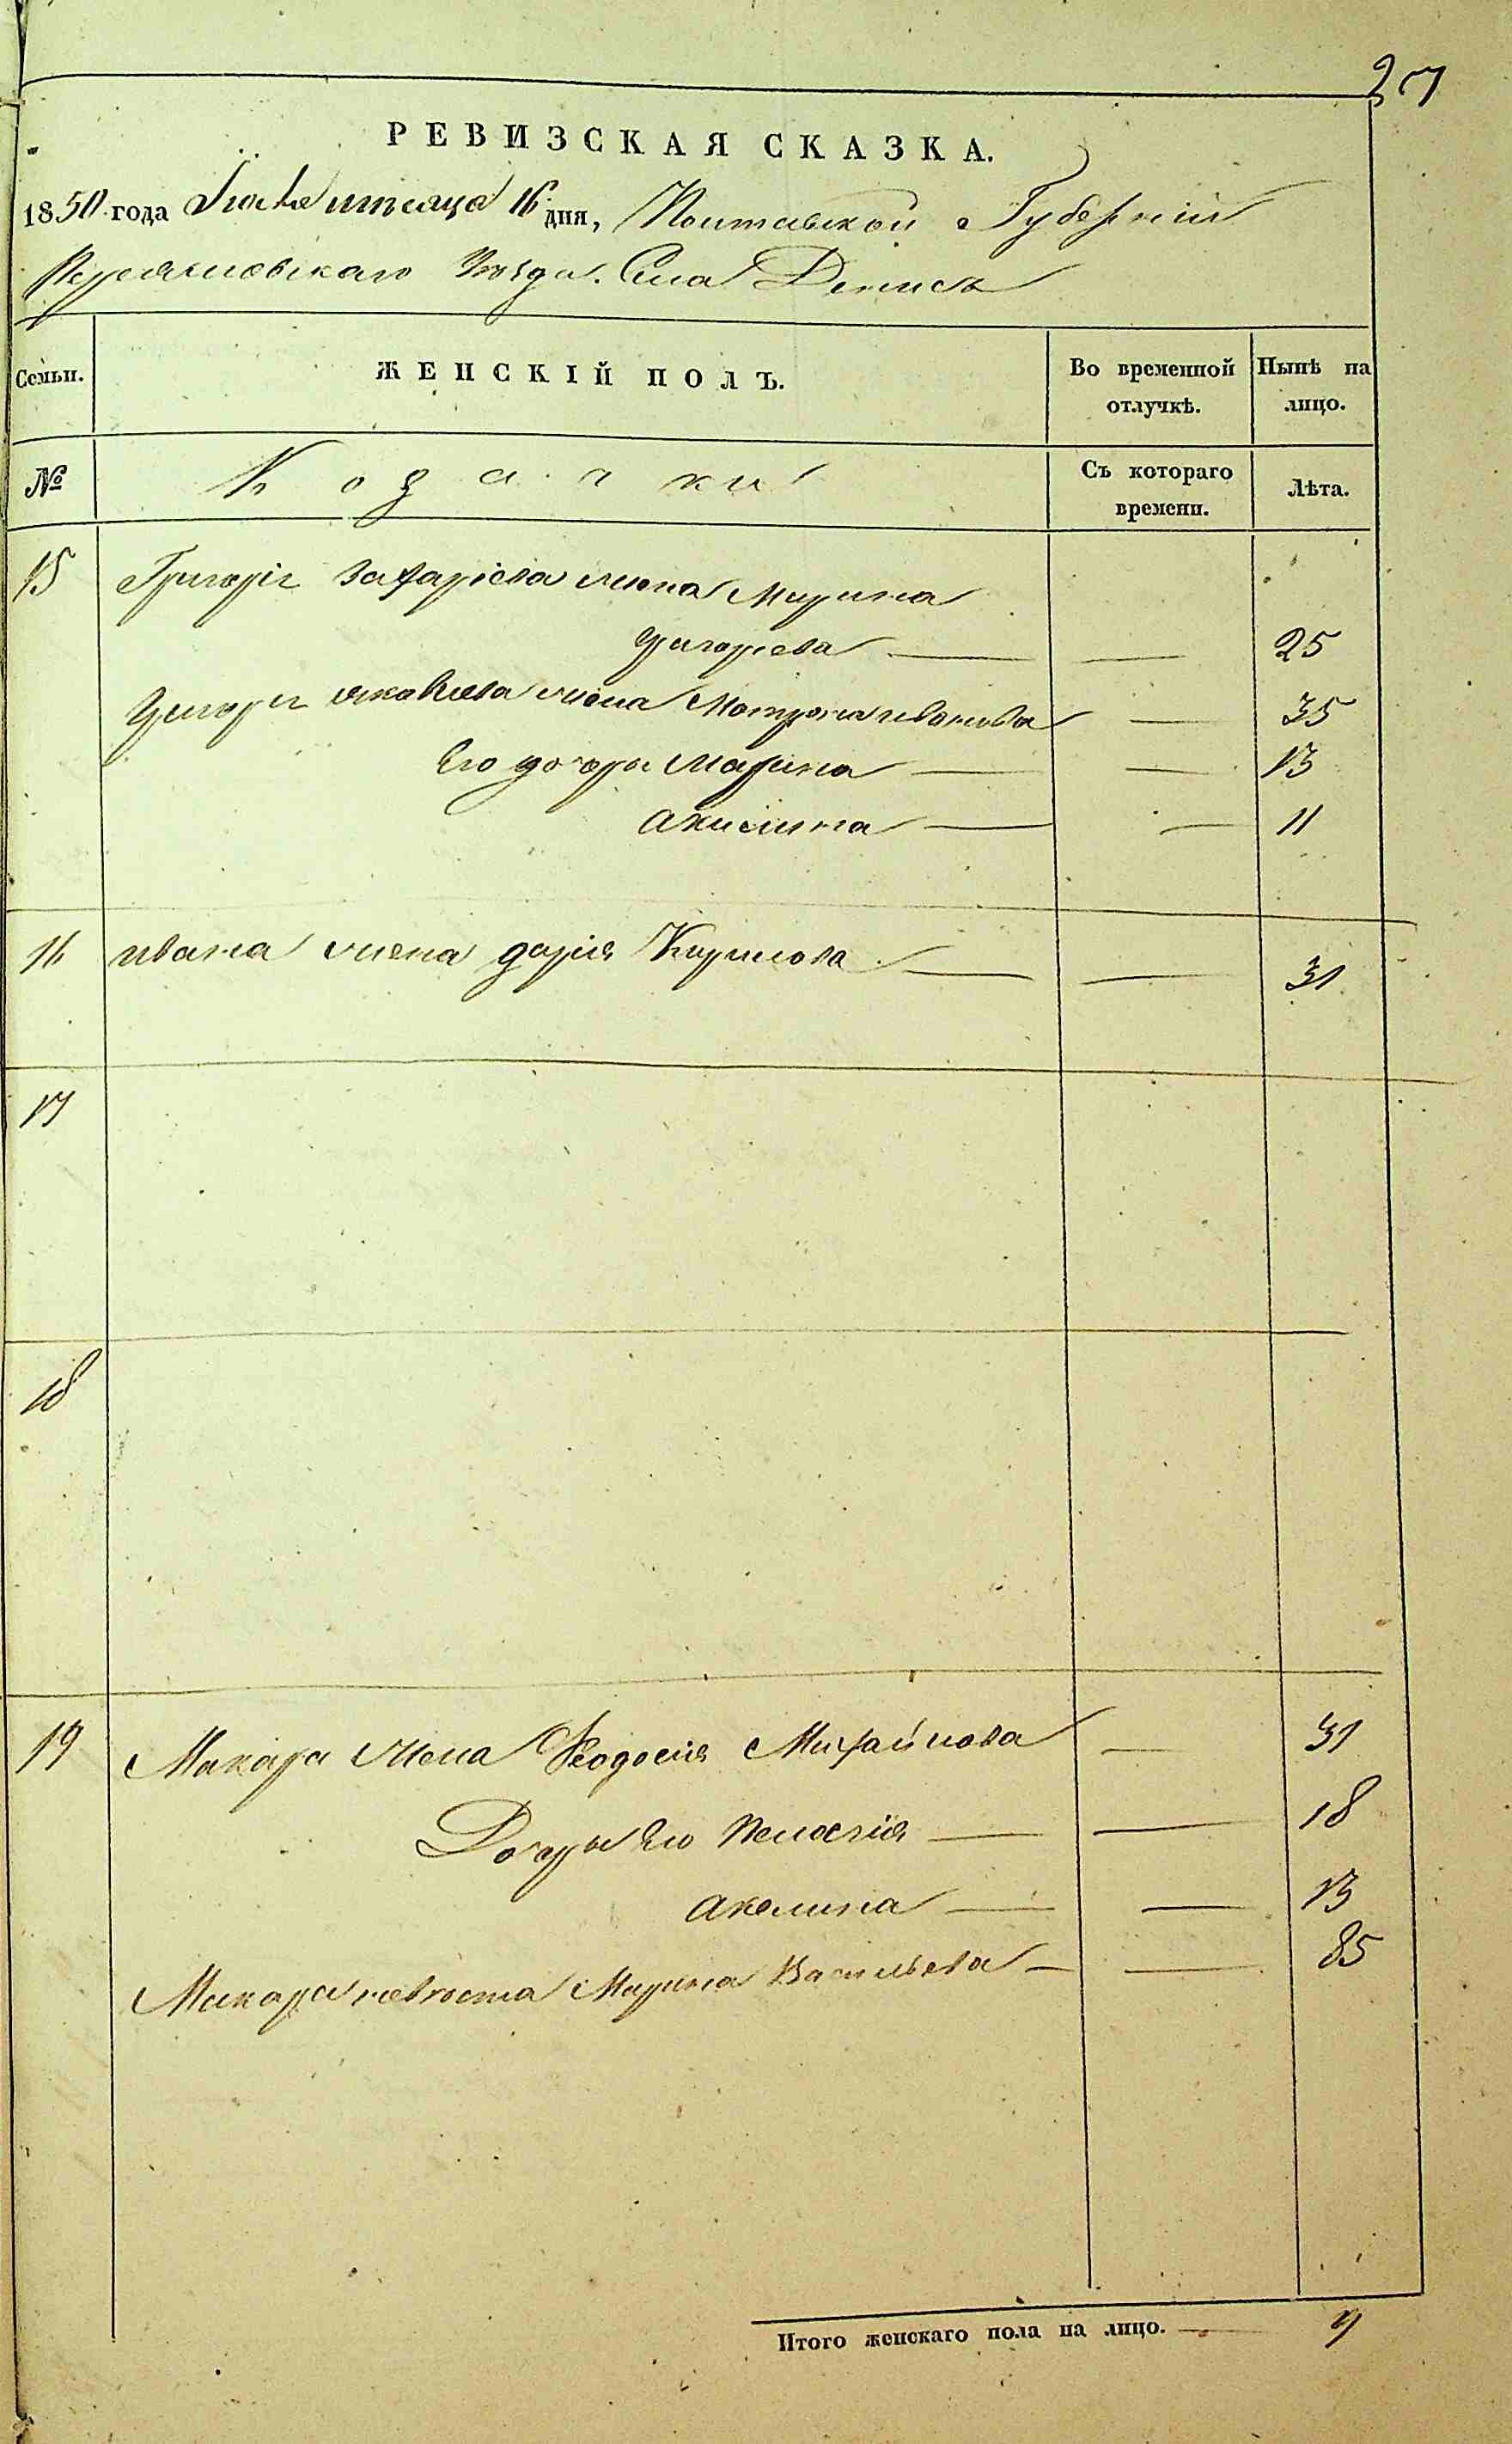 27
РЕВИЗСКАЯ СКАЗКА.
1850 года Июля месяца 16 дня, Полтавской Губерніи
Переяславскаго Уезда. Села Денисъ
Семьи.
ЖЕНСКІЙ ПОЛЪ.
Во временной отлучкѣ.
Нынѣ на лицо.
№
Козачки
Съ котораго времени.
Лѣта.
15 Григорія Захаріева жена Марина
Григорьева — — 25
Григорія Яковлева жена Мотрона иванова — 35
Его дочери Марина — — 13
Акилина — — 11
16 ивана жена дарія Кирилова — — 31
17
18
19 Макара жена Феодосия Михайлова — 31
Дочеры Его Пелагия — — 18
Акелина — — 13
Макара невестка Марина Васильева — — 85
Итого женскаго пола на лицо. — 9